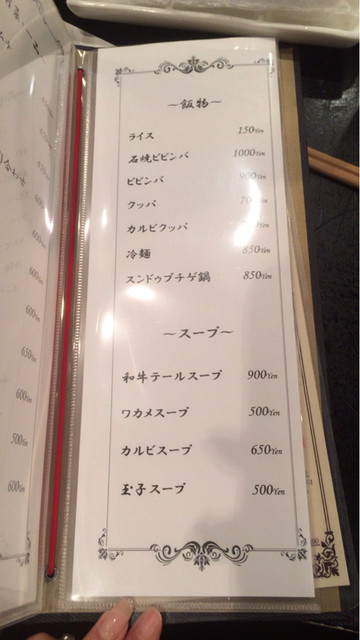 ～飯物～
ライス 150Yen
石焼ビビンバ 1000Yen
ビビンバ 900Yen
クッパ
カルビクッパ
冷麺 850Yen
スンドゥブチゲ鍋 850Yen
～スープ～
和牛テールスープ 900Yen
ワカメスープ 500Yen
カルビスープ 650Yen
玉子スープ 500Yen
600Yen
600Yen
600Yen
650Yen
600Yen
500Yen
600Yen